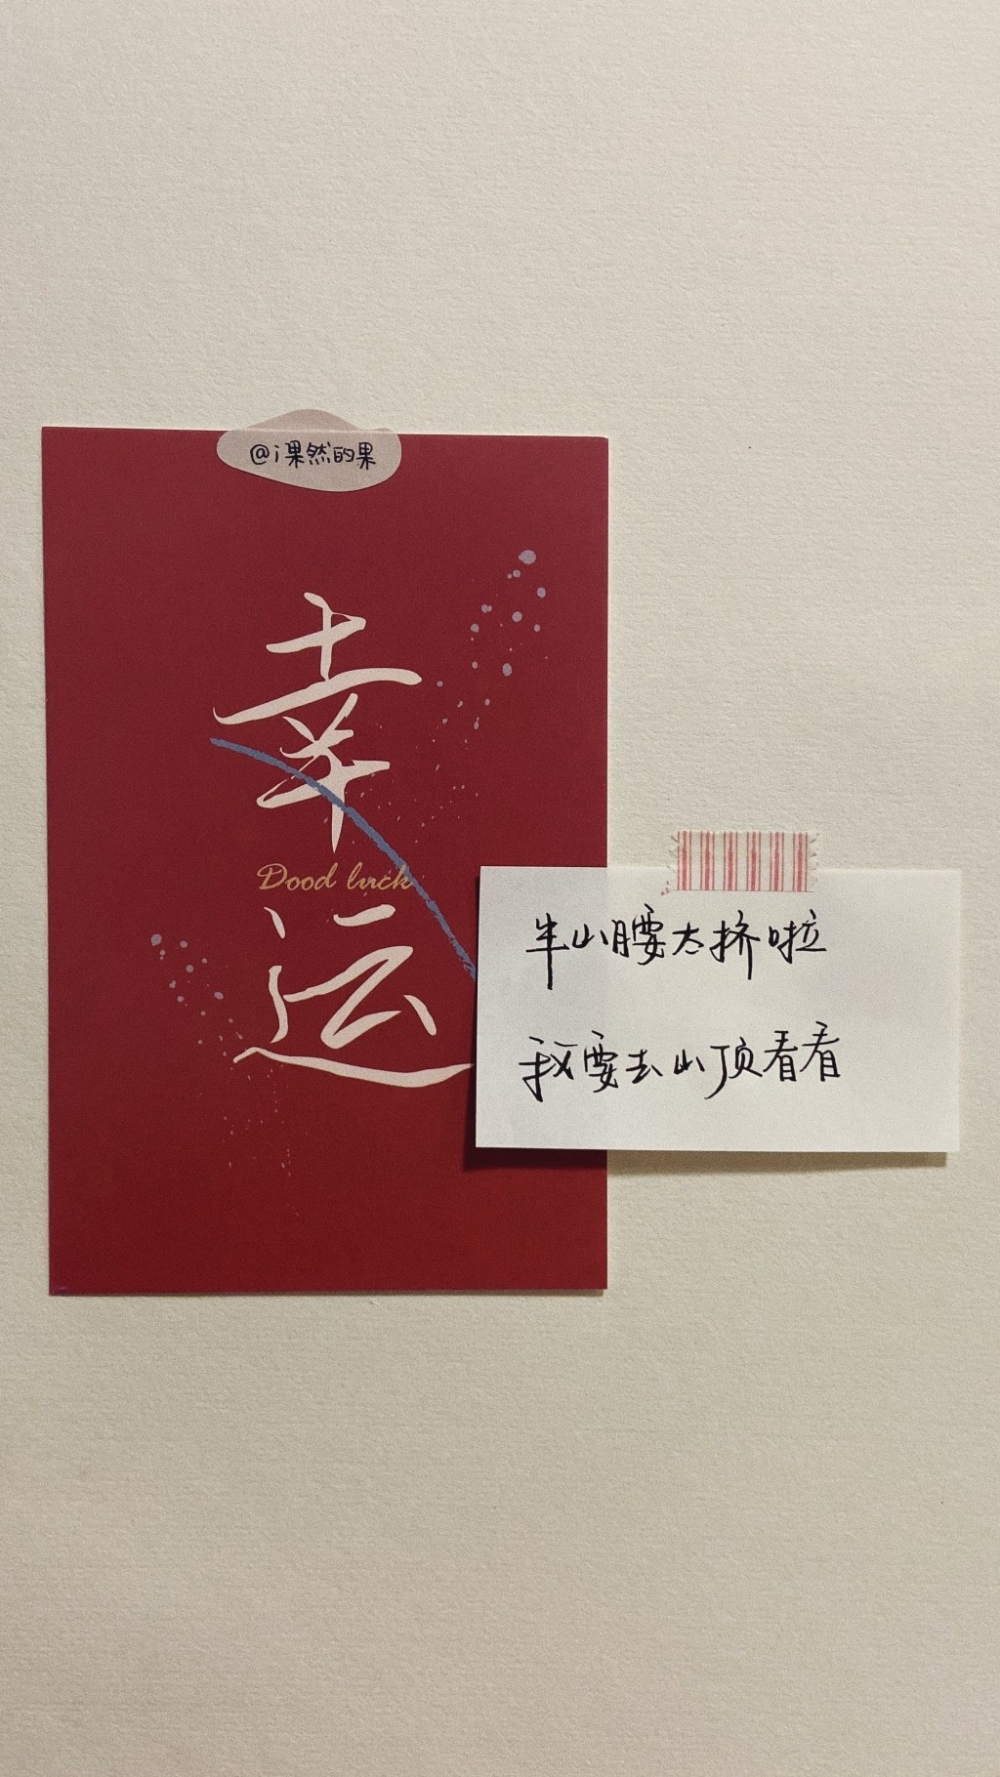 @i果然的果
幸
Dood luck
运
半山腰太挤啦
我要去山顶看看